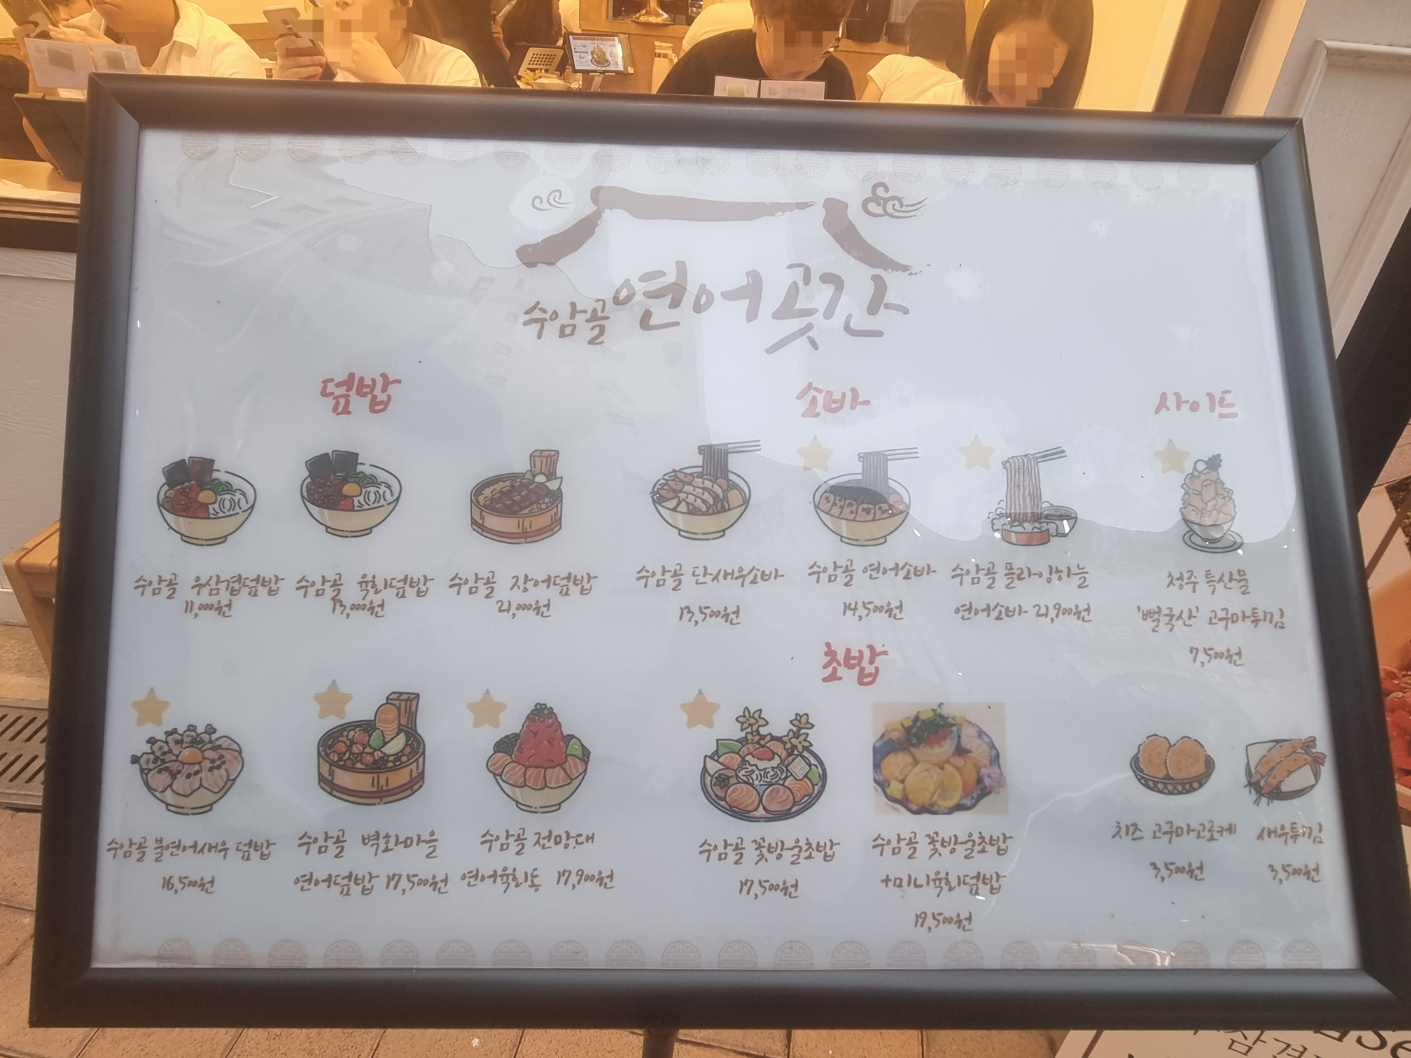 수암골 연어곳간
덮밥
수암골 우삼겹덮밥
11,000원
수암골 육회덮밥
13,000원
수암골 장어덮밥
21,000원
소바
수암골 단새우소바
13,500원
수암골 연어소바
14,500원
수암골 플라잉하늘
연어소바 21,900원
사이드
청주 특산물
'뻘국산' 고구마튀김
7,500원
수암골 불연어새우 덮밥
16,500원
수암골 벽화마을
연어덮밥 17,500원
수암골 전망대
연어육회동 17,900원
초밥
수암골 꽃방울초밥
17,500원
수암골 꽃방울초밥
+미니육회덮밥
19,500원
치즈 고구마고로케
3,500원
새우튀김
3,500원